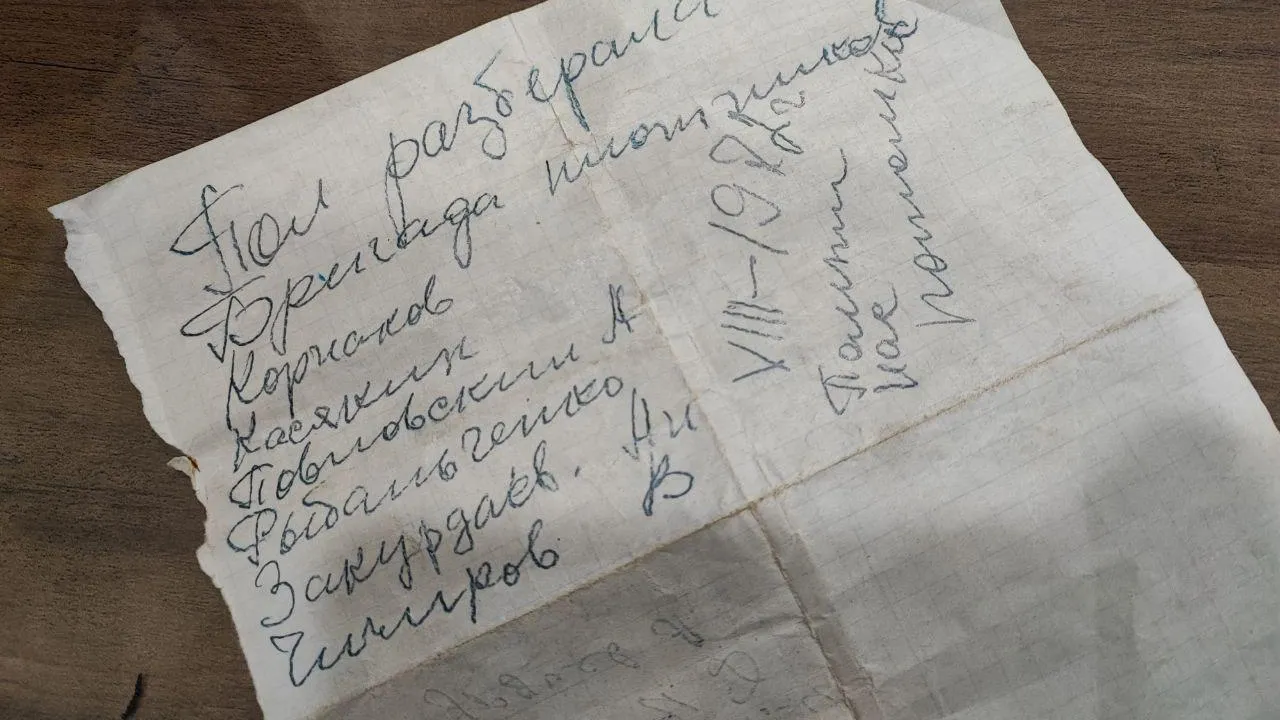 Пол разберала
Бригада плотников
Корчаков
Касякин
Повловский А
Рыбальченко
Закурдаев. Ан
Чичиров В
VIII-1972г
Помнии
нас
потомки